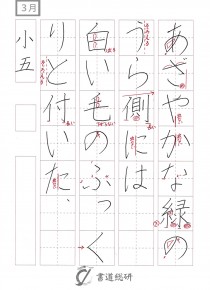 3月
小五
あざやかな緑の
うら側には
白い毛のふっく
りと付いた、
書道総研